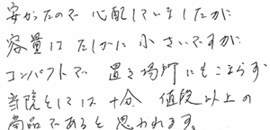 安かったので心配していましたが
容量はたしかに小さいですが
コンパクトで置き場所にもこまらず
当院としては十分値段以上の
商品であると思われます。